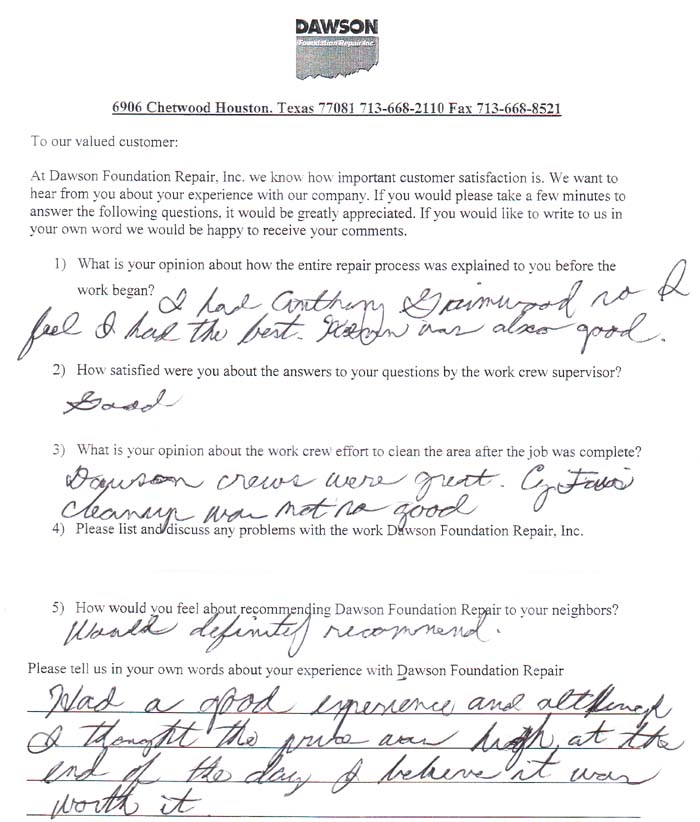 DAWSON
Foundation Repair Inc.
6906 Chetwood Houston. Texas 77081 713-668-2110 Fax 713-668-8521
To our valued customer:
At Dawson Foundation Repair, Inc. we know how important customer satisfaction is. We want to
hear from you about your experience with our company. If you would please take a few minutes to
answer the following questions, it would be greatly appreciated. If you would like to write to us in
your own word we would be happy to receive your comments.
1) What is your opinion about how the entire repair process was explained to you before the
work began? I had Anthony Grimwood so I
feel I had the best. was also good.
2) How satisfied were you about the answers to your questions by the work crew supervisor?
Good
3) What is your opinion about the work crew effort to clean the area after the job was complete?
Dawson crews were great. Cy Fair
cleanup was not so good
4) Please list and discuss any problems with the work Dawson Foundation Repair, Inc.
5) How would you feel about recommending Dawson Foundation Repair to your neighbors?
Would definitely recommend.
Please tell us in your own words about your experience with Dawson Foundation Repair
Had a good experience and although
I thought the price was high, at the
end of the day I believe it was
worth it